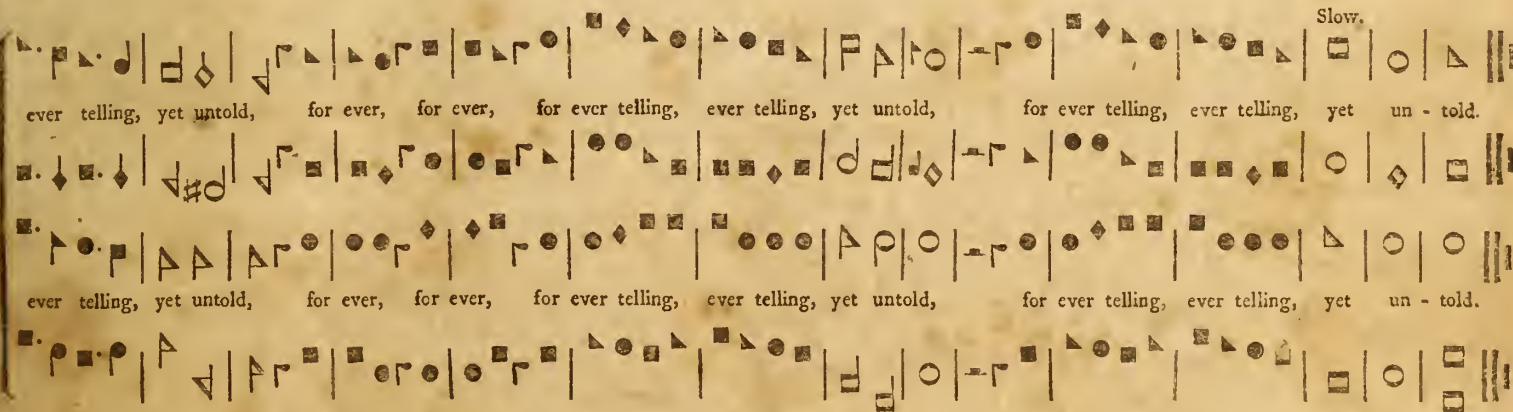 Slow.
ever telling, yet untold, for ever, for ever, for ever telling, ever telling, yet untold, for ever telling, ever telling, yet un - told.
ever telling, yet untold, for ever, for ever, for ever telling, ever telling, yet untold, for ever telling, ever telling, yet un - told.